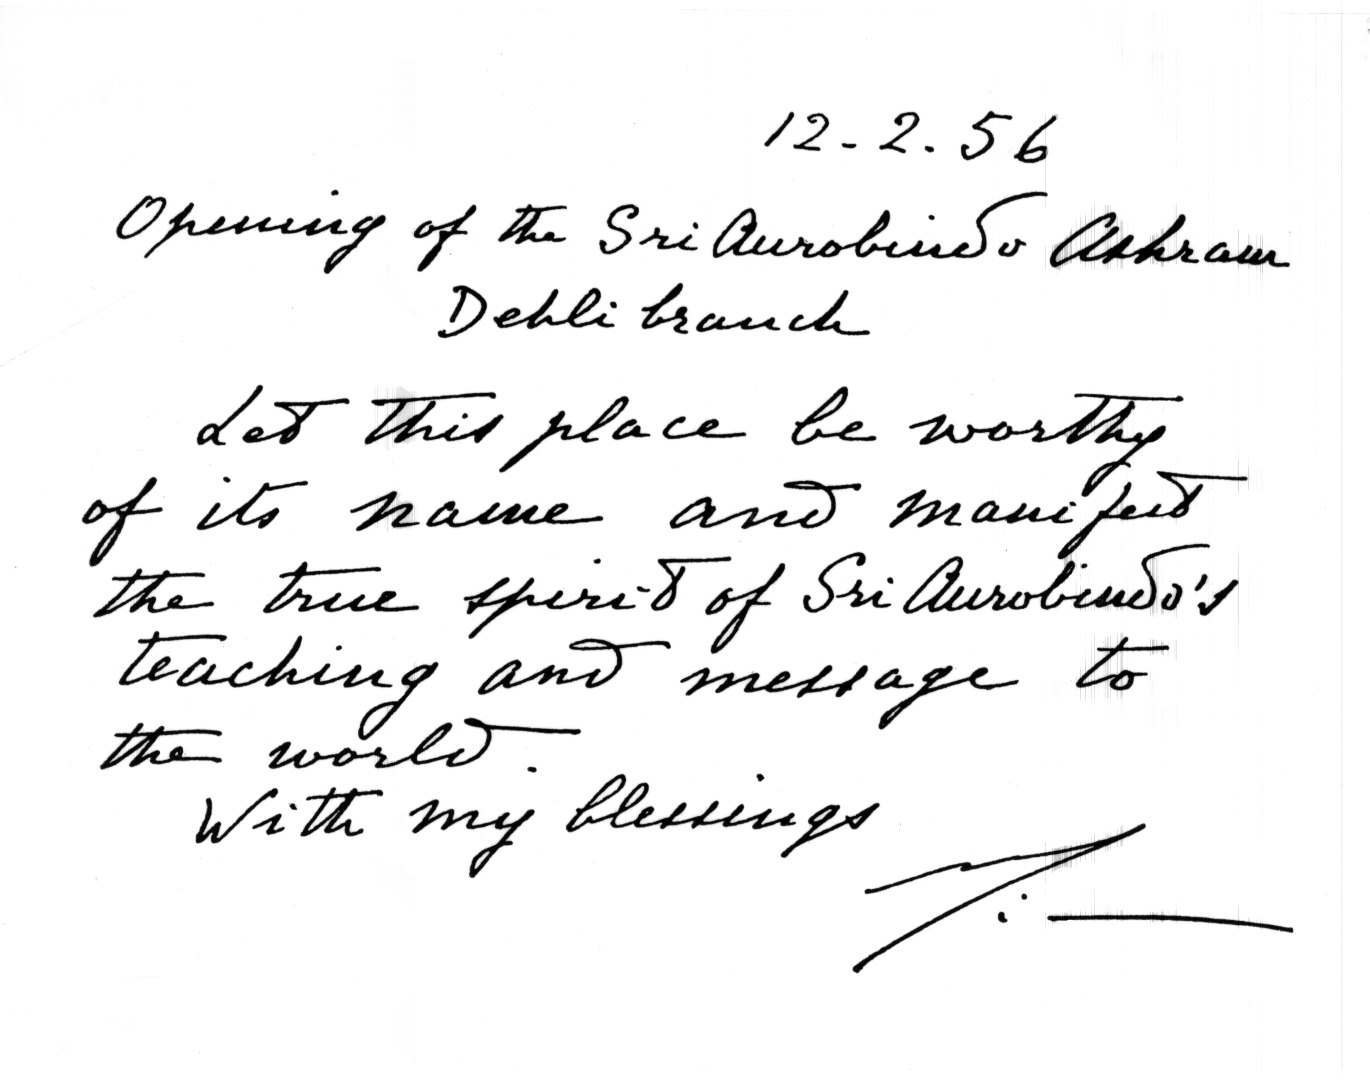 12-2.56
Opening of the Sri Aurobindo Ashram
Dehli branch
Let this place be worthy
of its name and manifest
the true spirit of Sri Aurobindo's
teaching and message to
the world.
With my blessings